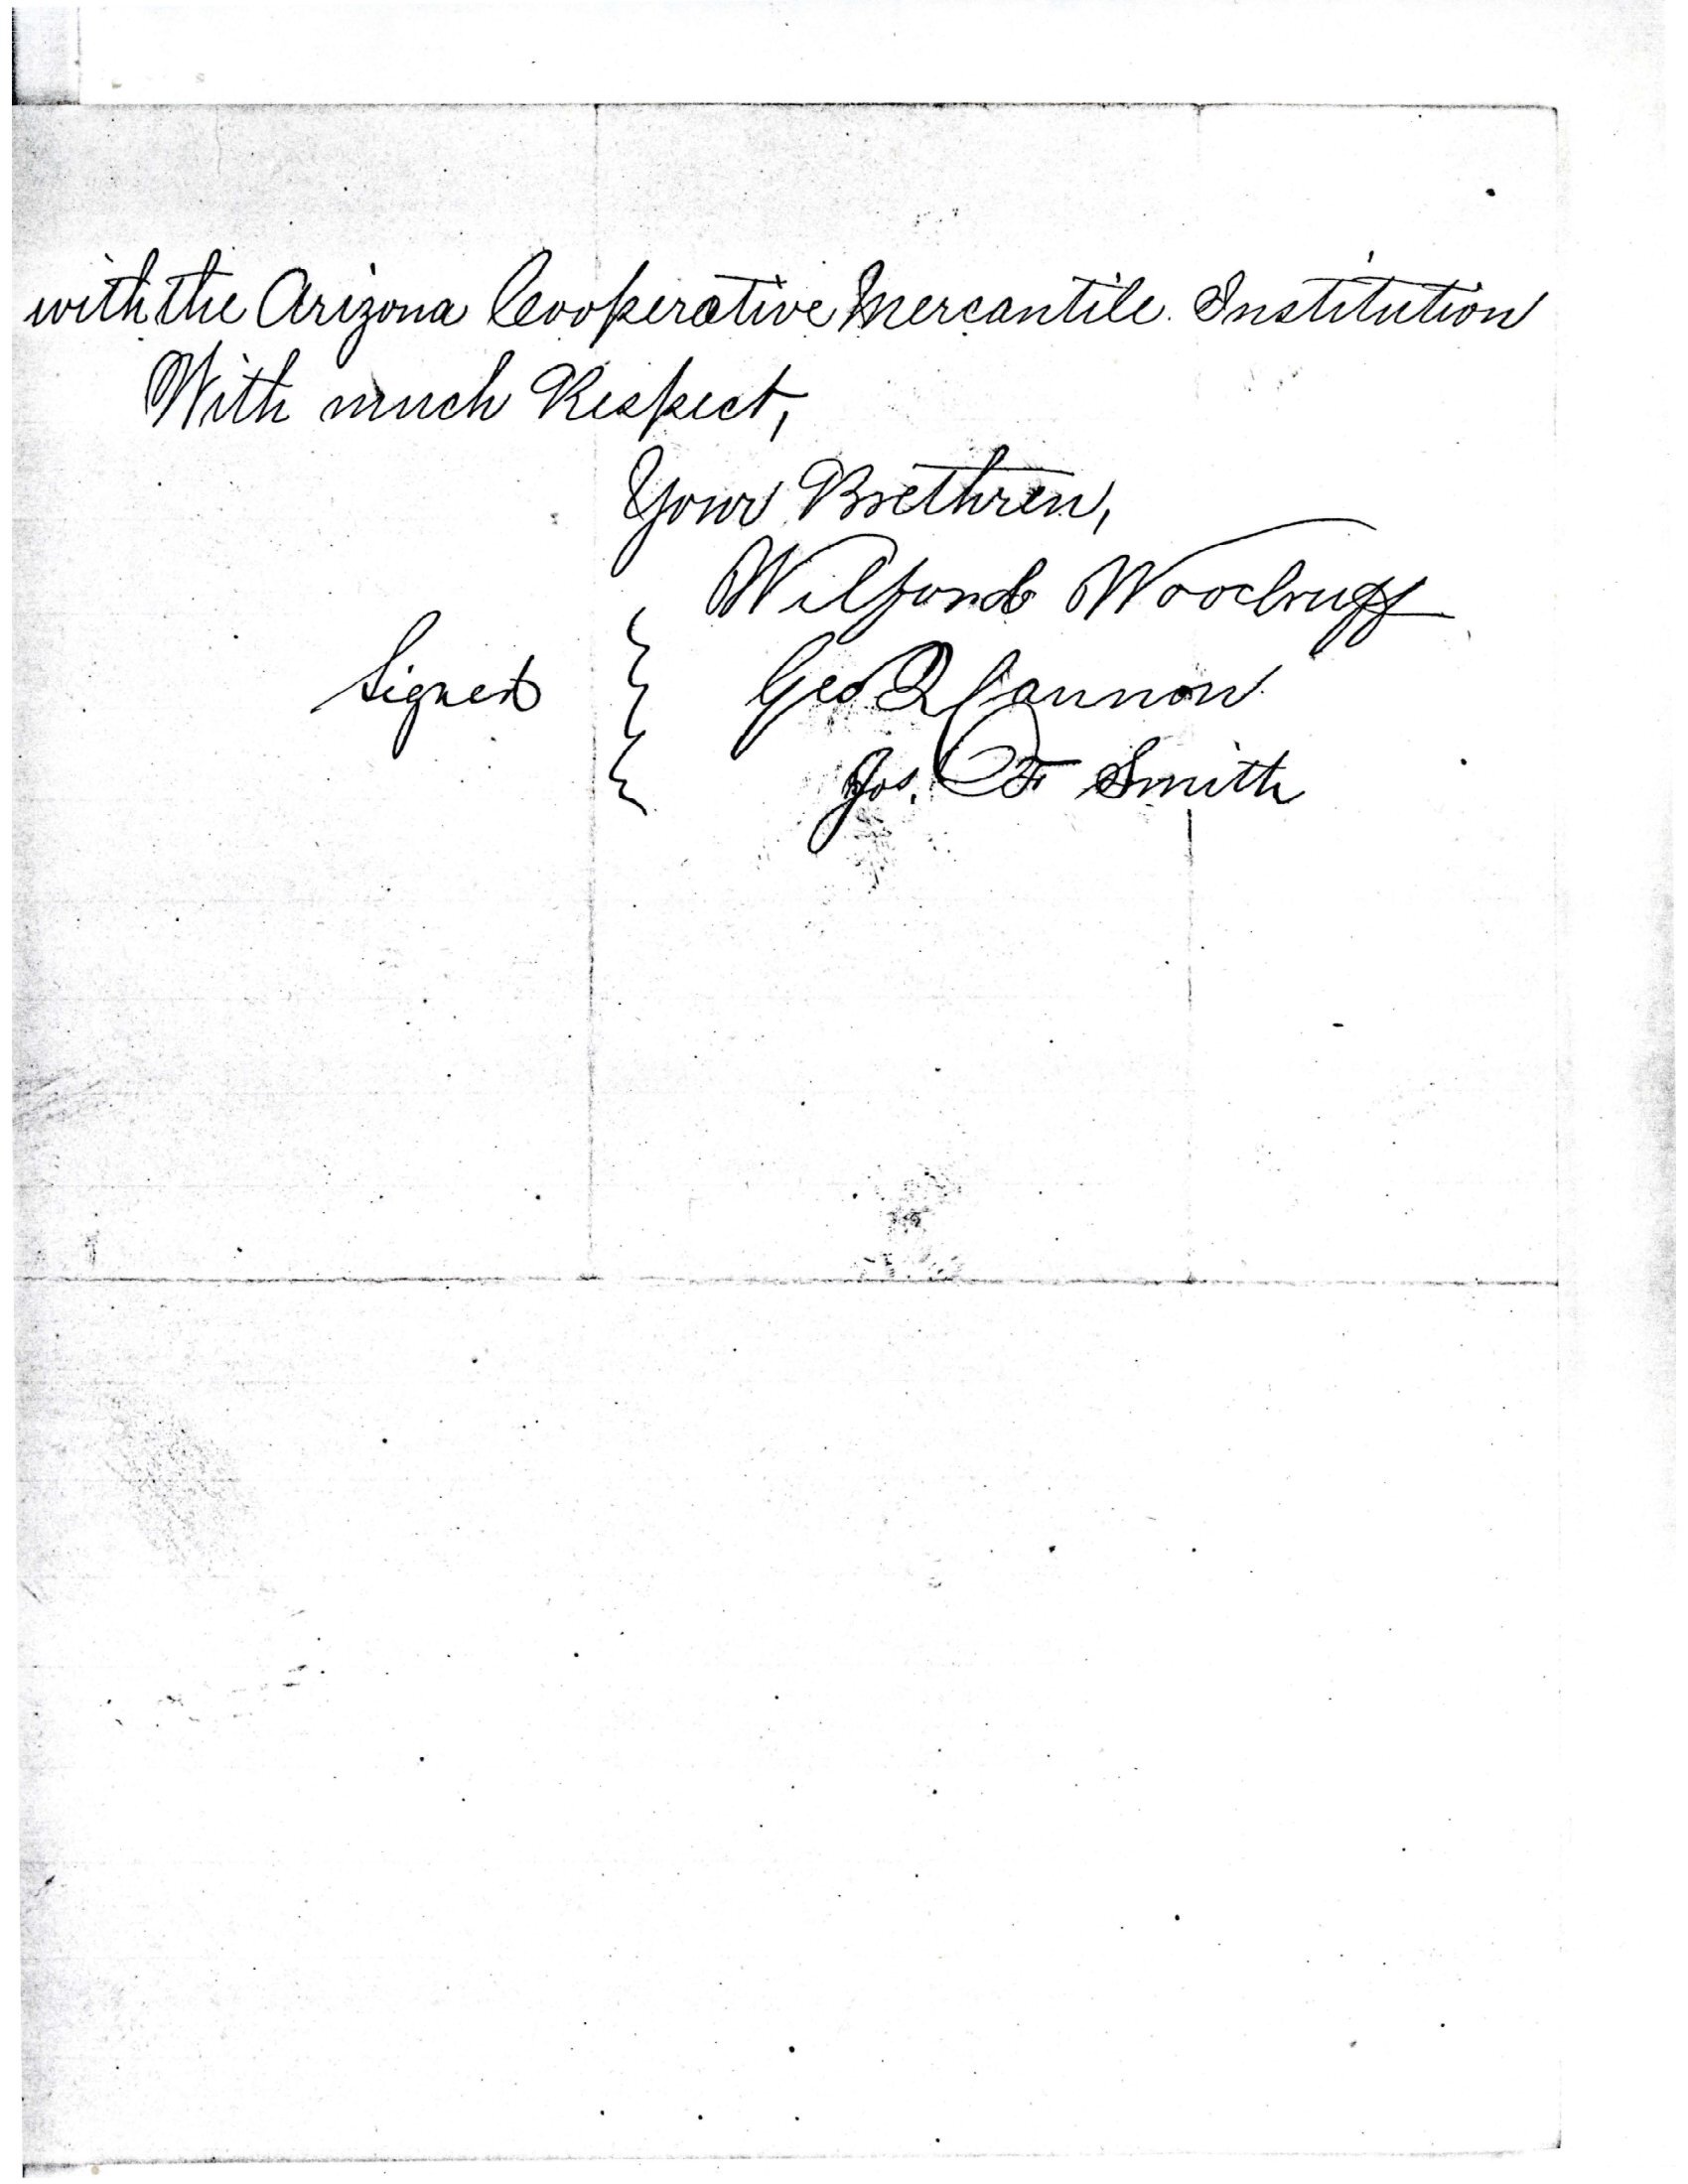 with the Arizona Cooperative Mercantile Institution
With much Respect,
Your Brethren,
Wilford Woodruff
Signed { Geo Q Cannon
Jos. F Smith